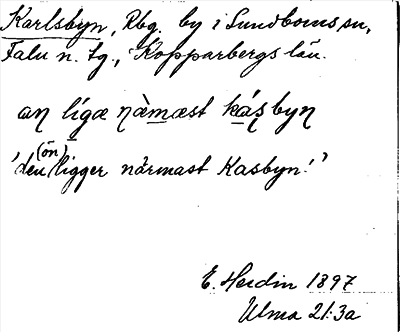 Karlsbyn, Rbg. by i Sundborns sn,
Falu n. tg., Kopparbergs län.
an líga nàmæst kásbyn
'den (ön) ligger närmast Kasbyn!'
E. Hedin 1897
Ulma 21:3a